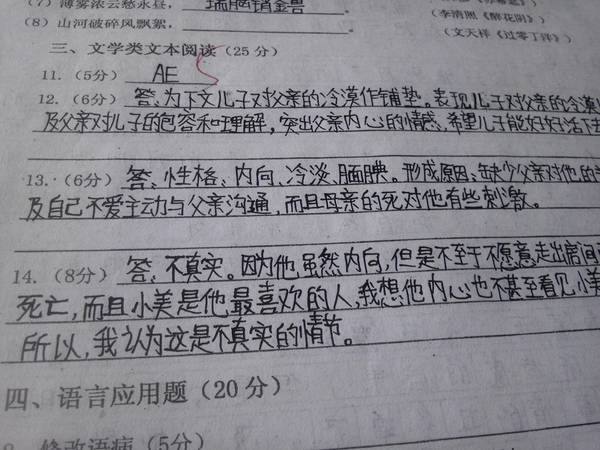 (7) 薄雾浓云愁永昼,瑞脑销金兽
(李清照《醉花阴》)
(8) 山河破碎风飘絮,
(文天祥《过零丁洋》)
三、文学类文本阅读(25分)
11.(5分) AE 5
12.(6分) 答:为下文儿子对父亲的冷漠作铺垫。表现儿子对父亲的冷漠
及父亲对儿子的包容和理解,突出父亲内心的情感,希望儿子能好好活下去
13.(6分) 答:性格:内向、冷淡、腼腆。形成原因:缺少父亲对他的
及自己不爱主动与父亲沟通,而且母亲的死对他有些刺激。
14.(8分) 答:不真实。因为他虽然内向,但是不至于不愿意走出房间
死亡,而且小美是他最喜欢的人,我想他内心也不甚至看见小美
所以,我认为这是不真实的情节。
四、语言应用题(20分)
修改语病(5分)